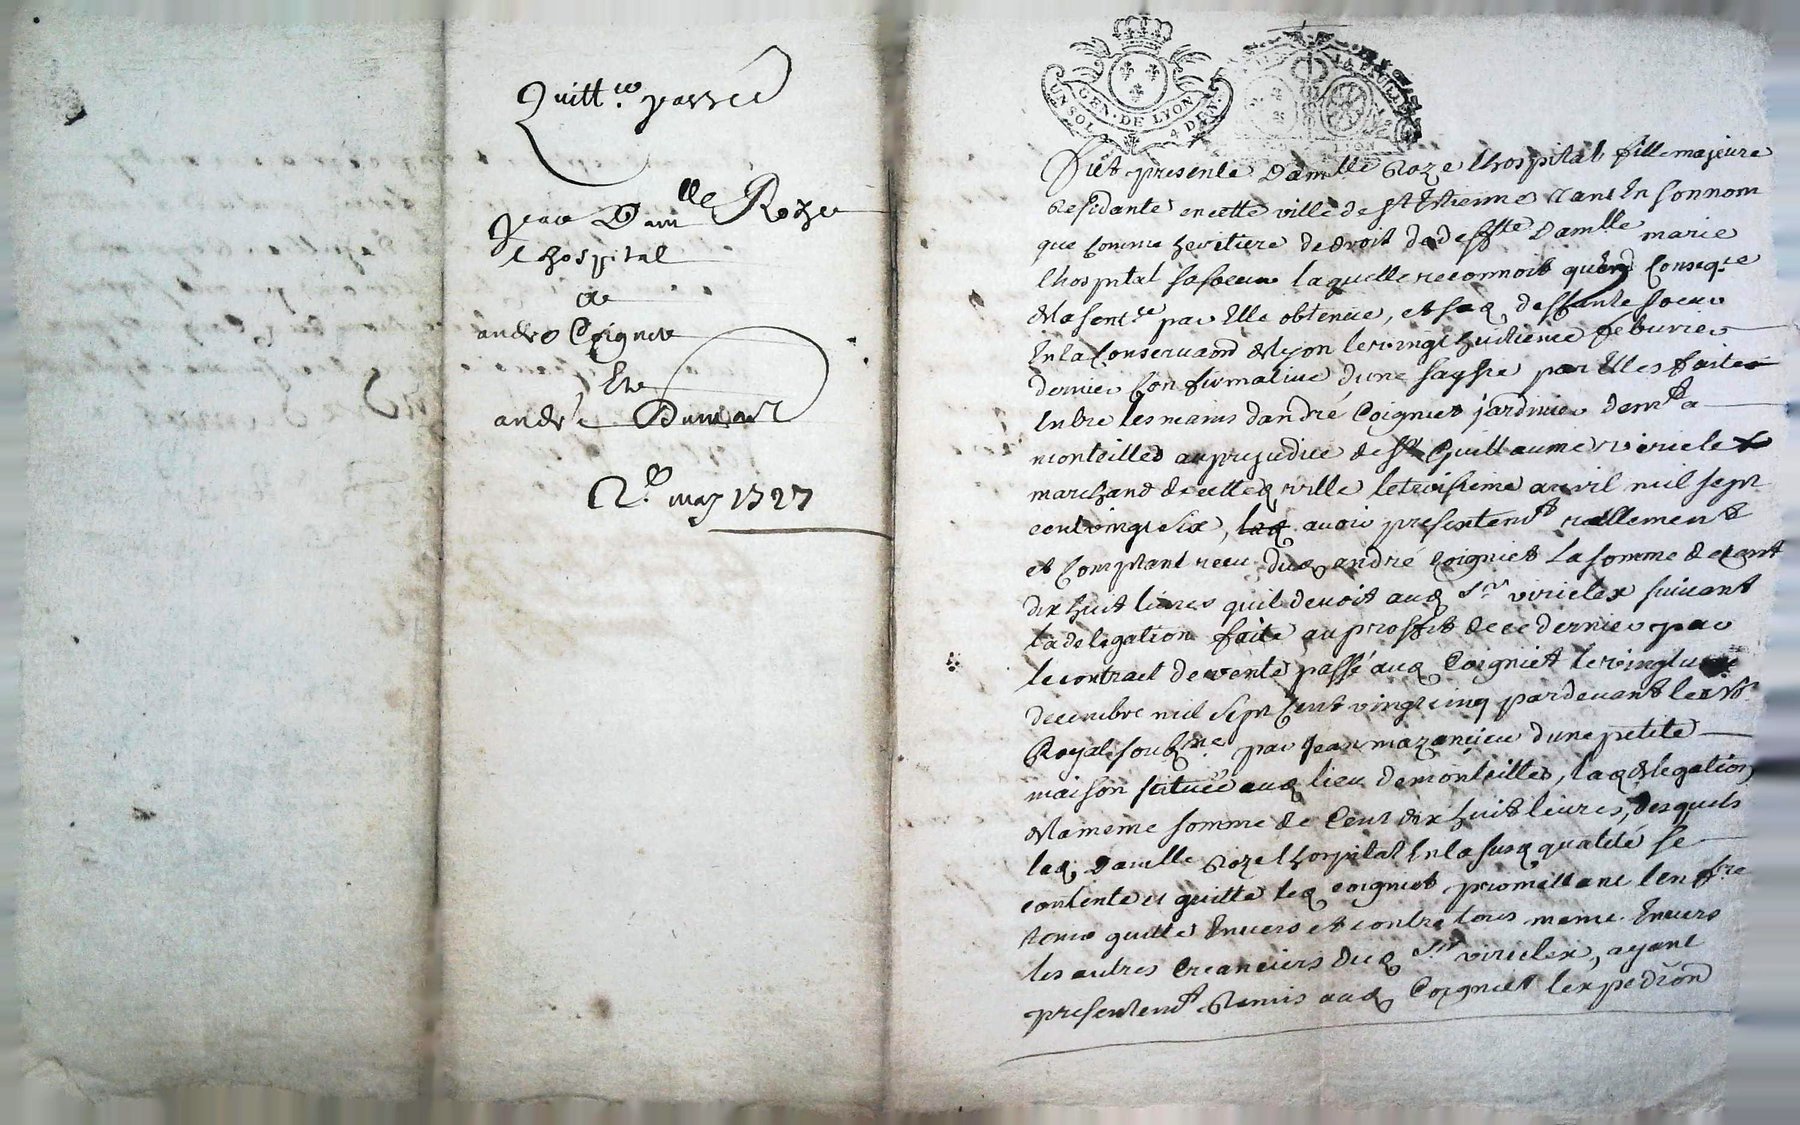 Quitt.ce passée
par Dam.lle Roze
lhospital
a
andré Coignet
Et
andré Dumar
2.e may 1727
GEN. DE LYON
UN SOL 4 DEN
LA FEUILLE
Fut presente Dam.lle Roze lhospital fille majeure
Residante en cette ville de St Etienne tant En son nom
que comme heritiere de droit de deffte Damlle marie
lhospital sa soeur laquelle reconnoit quen Conseq.ce
de la sent.ce par Elle obtenue, et sad. deffunte soeur
En la Conservaon de Lyon le vingt huitieme febvrier
dernier Confirmative d'une saysie par Elles faite
Entre les mains dandré Coigniet jardinier dem.t a
monteilles au prejudice de Sr Guillaume viricelex
marchand de cetted. ville le troisieme avril mil sept
cent vingt six, avoir presentem.t reellement
et Comptant receu dud. andré Coigniet La somme de cent
dix huit livres quil devoit aud. Sr. viricelex suivant
la delegation faite au proffit de ce dernier par
le contract de vente passé aud. Coigniet le vingt
decembre mil sept Cent vingt cinq pardevant le no.re
Royal soubz.né par Jean mazancieu d'une petite
maison scituée aud. lieu de monteilles, lad. delegation
de la meme somme de Cent dix huit livres, desquels
lad. Damlle Roze lhospital En la susd. qualité se
contente et quitte led. coigniet promettant l'en f.re
tenir quitte Envers et contre tous meme Envers
les autres Creanciers dud. Sr. viricelex, ayant
presentem.t Remis aud. Coigniet l'expedion